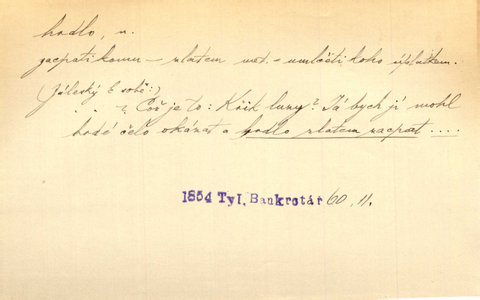 hrdlo, n.
zacpati komu – zlatem met. – umlčeti koho úplatkem.
(Jáleský k sobě:)
. . ? Což je to: Křik luny? Já bych jí mohl
hrdé čelo okázat a hrdlo zlatem zacpat ....
1854 Tyl, Bankrotář 60, 11.